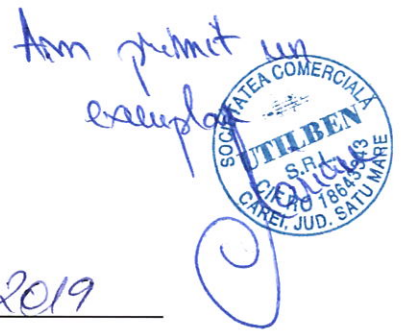 Am primit un
exemplar
SOCIETATEA COMERCIALĂ
UTILBEN
S.R.L.
CAREI, JUD. SATU MARE
2019